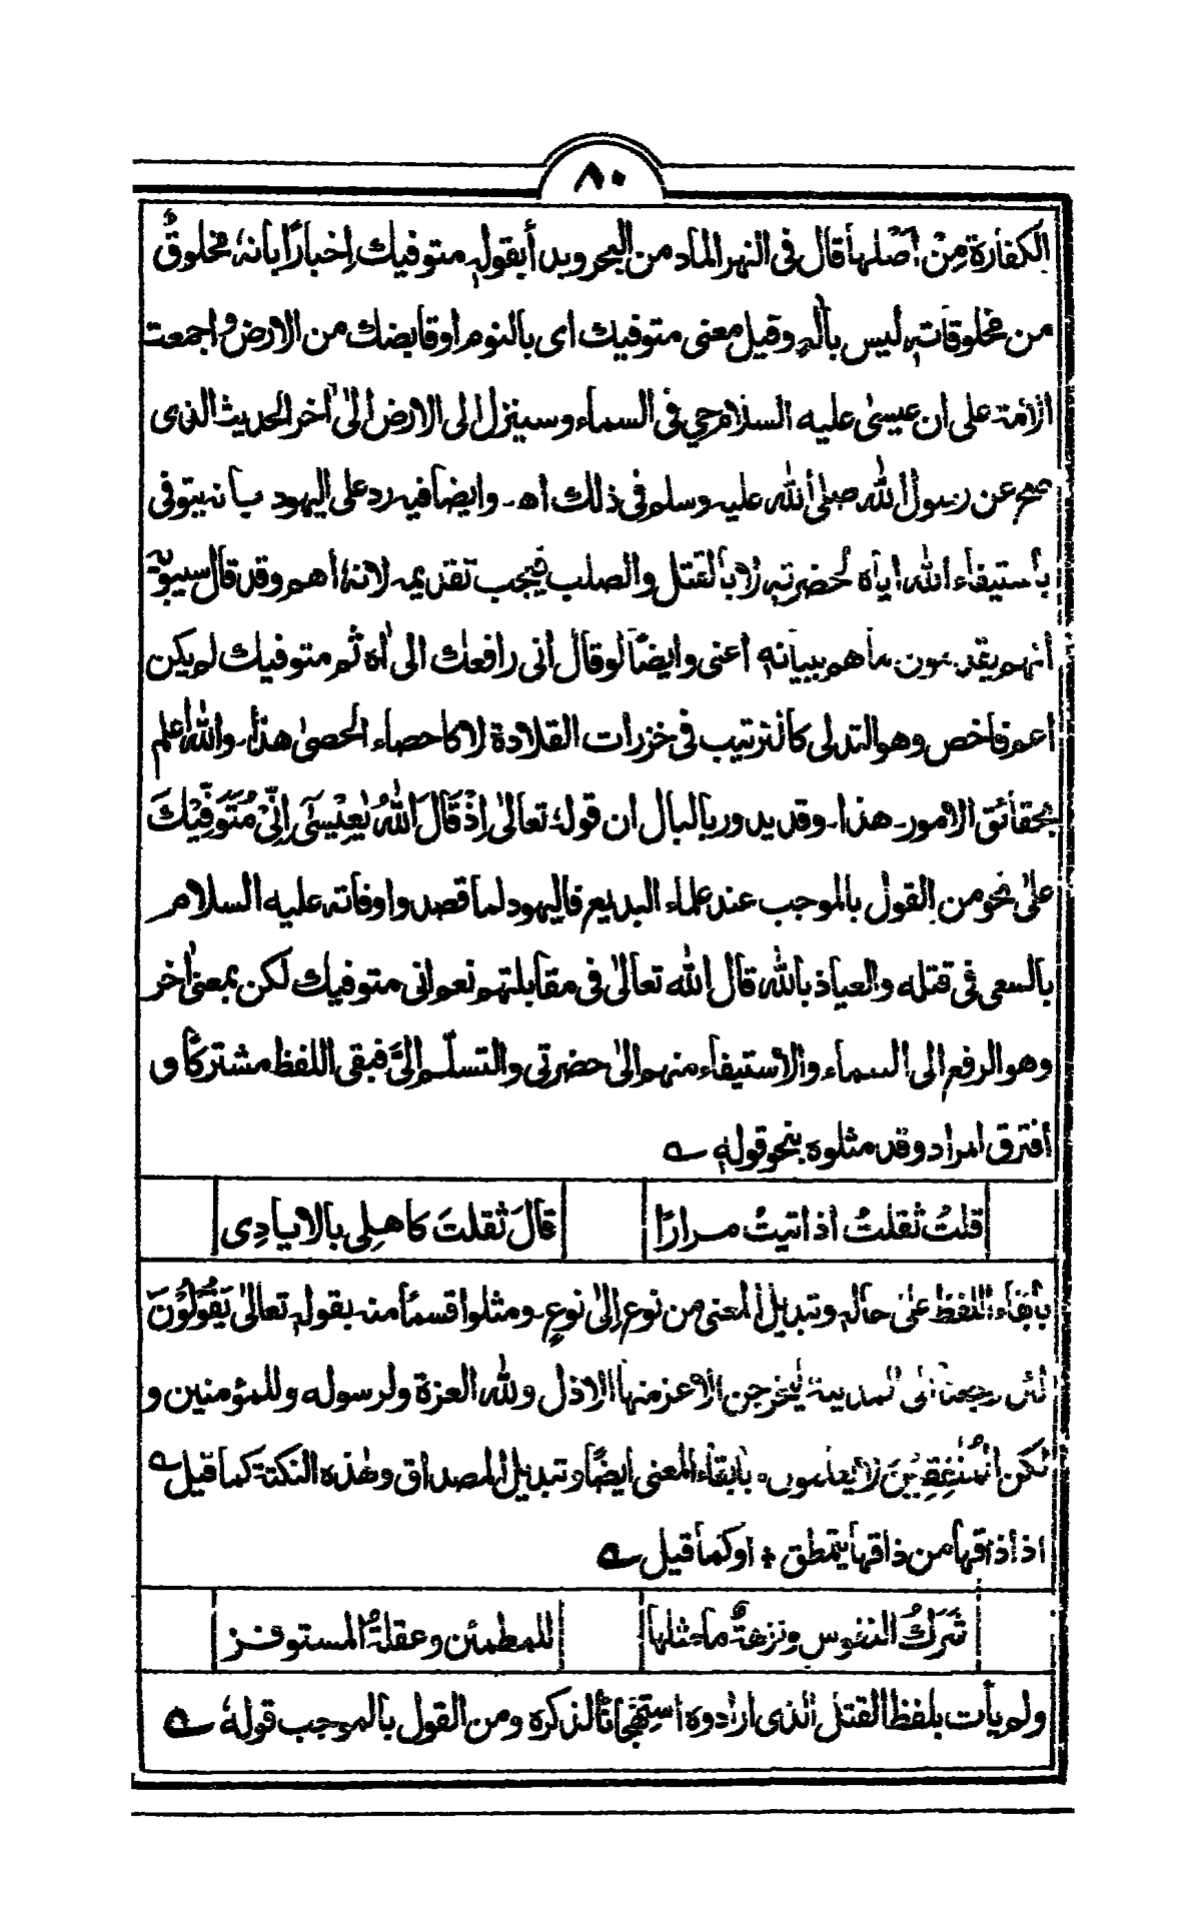 ٨٠
الكفارة مِنْ أصْلها قال فى النهر الماد من البحر وبدأ بقوله متوفيك إخبارًا بانه مخلوقٌ
من مخلوقاته ليس بأله وقيل معنى متوفيك اى بالنوم او قابضك من الارض واجمعت
الأمة على ان عيسىٰ عليه السلام حي فى السماء وسينزل الى الارض الىٰ اٰخر الحديث الذى
صح عن رسول الله صلى الله عليه وسلم فى ذلك اهـ۔ وايضا فيه رد على اليهود بأنه يتوفى
بأستيفاء الله اياه لحضرته لا بالقتل والصلب فيجب تقديمه لانه اهم وقد قال سيبويه
انهم يقدمون ما هم ببيانه اعنى وايضًا لو قال انى رافعك الى اٰه ثم متوفيك لم يكن
اعم فاخص وهو التدلى كالترتيب فى خزرات القلادة لا كاحصاء الحصىٰ هذا۔ والله اعلم
بحقائق الامور۔ هذا۔ وقد يدور بالبال ان قوله تعالىٰ إِذْ قَالَ اللهُ يٰعِيْسٰٓى اِنِّىْ مُتَوَفِّيْكَ
علىٰ نحو من القول بالموجب عند علماء البديع فاليهود لما قصدوا وفاته عليه السلام
بالسعى فى قتله والعياذ بالله قال الله تعالىٰ فى مقابلتهم نعم انى متوفيك لكن بمعنىٰ اٰخر
وهو الرفع الى السماء والأستيفاء منهم الىٰ حضرتى والتسلّم إلىَّ فبقى اللفظ مشتركًا و
افترق المراد وقد مثلوه بنحو قوله ؎
قلتُ ثقلتُ اذ اتيتُ مرارًا قالَ ثقلتَ كاهلِى بالايادِى
بأبقاء اللفظ علىٰ حاله وتبديل المعنى من نوع إلىٰ نوعٍ۔ ومثلوا قسمًا منه بقوله تعالىٰ يَقُوْلُوْنَ
لئن رجعنا الى المدينة ليخرجن الاعز منها الاذل ولله العزة ولرسوله وللمؤمنين و
لكن المُنٰفِقِيْنَ لا يعلمون۔ بأبقاء المعنى ايضًا وتبديل المصداق وهٰذه النكتة كما قيل ؎
اذا ذاقها من ذاقها يتمطق ٭ او كما قيل ؎
شَرَكُ النفوس ونزهةٌ ما مثلها للمطمئن وعقلةُ المستوفز
ولم يأت بلفظ القتل الذى ارادوه استِهْجانًا لذكره ومن القول بالموجب قوله ؎